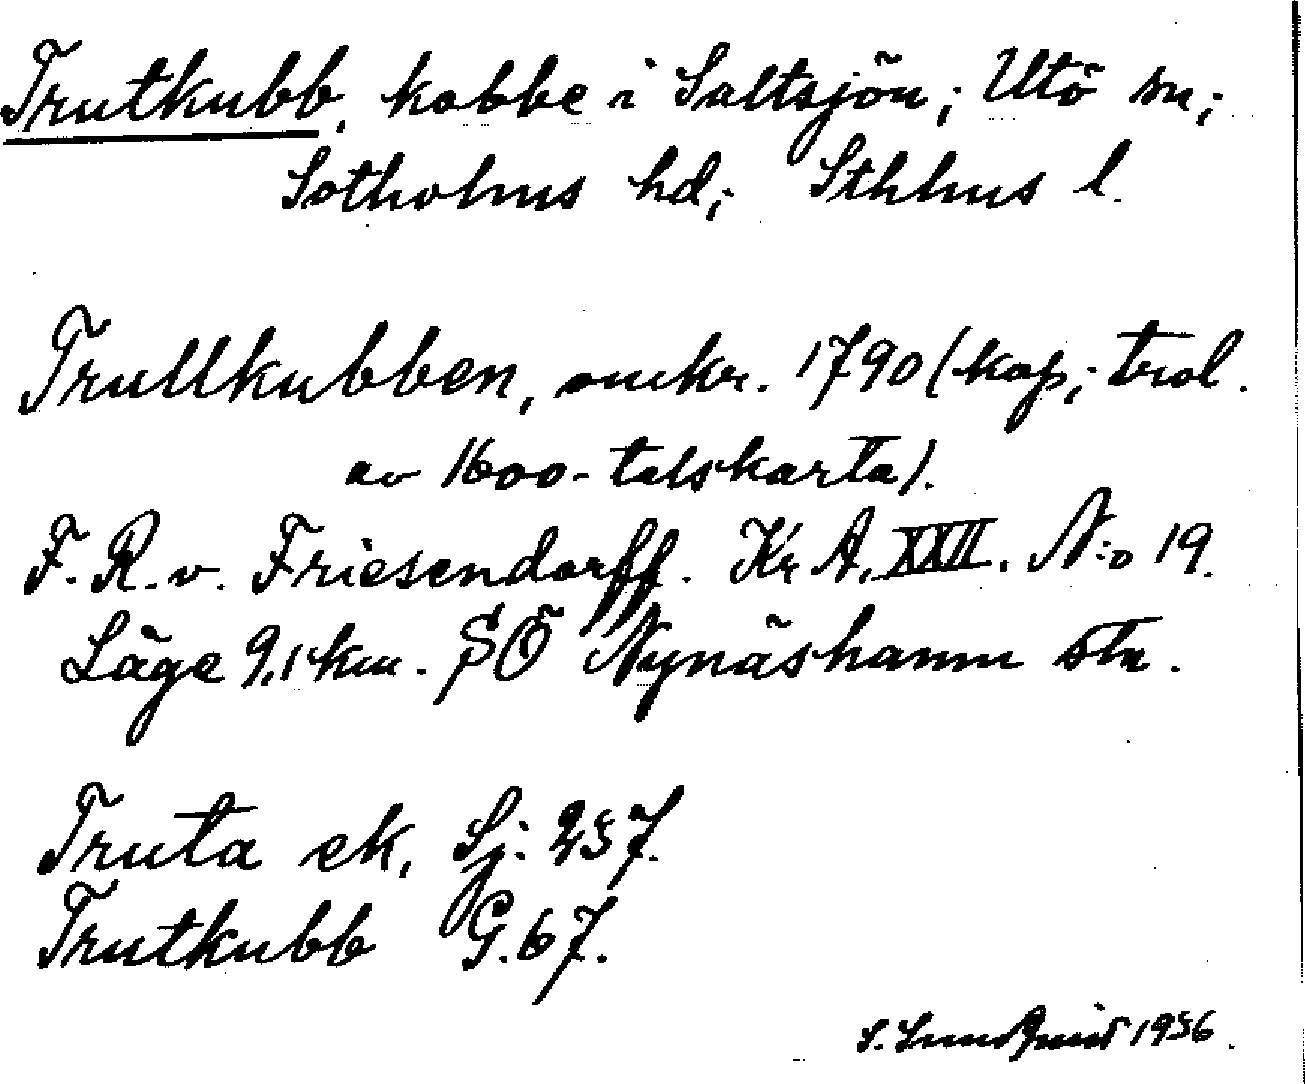 Trutkubb, kobbe i Saltsjön; Utö sn;
Sotholms hd; Sthlms l.
Trullkubben, omkr. 1790 (kop; trol.
av 1600-talskarta).
F. R. v. Friesendorff. Kr A. XXII. N:o 19.
Läge 9,1 km. SÖ Nynäshamn stn.
Truta ek, Sj. 257.
Trutkubb G. 67.
S. Lundquist 1936.